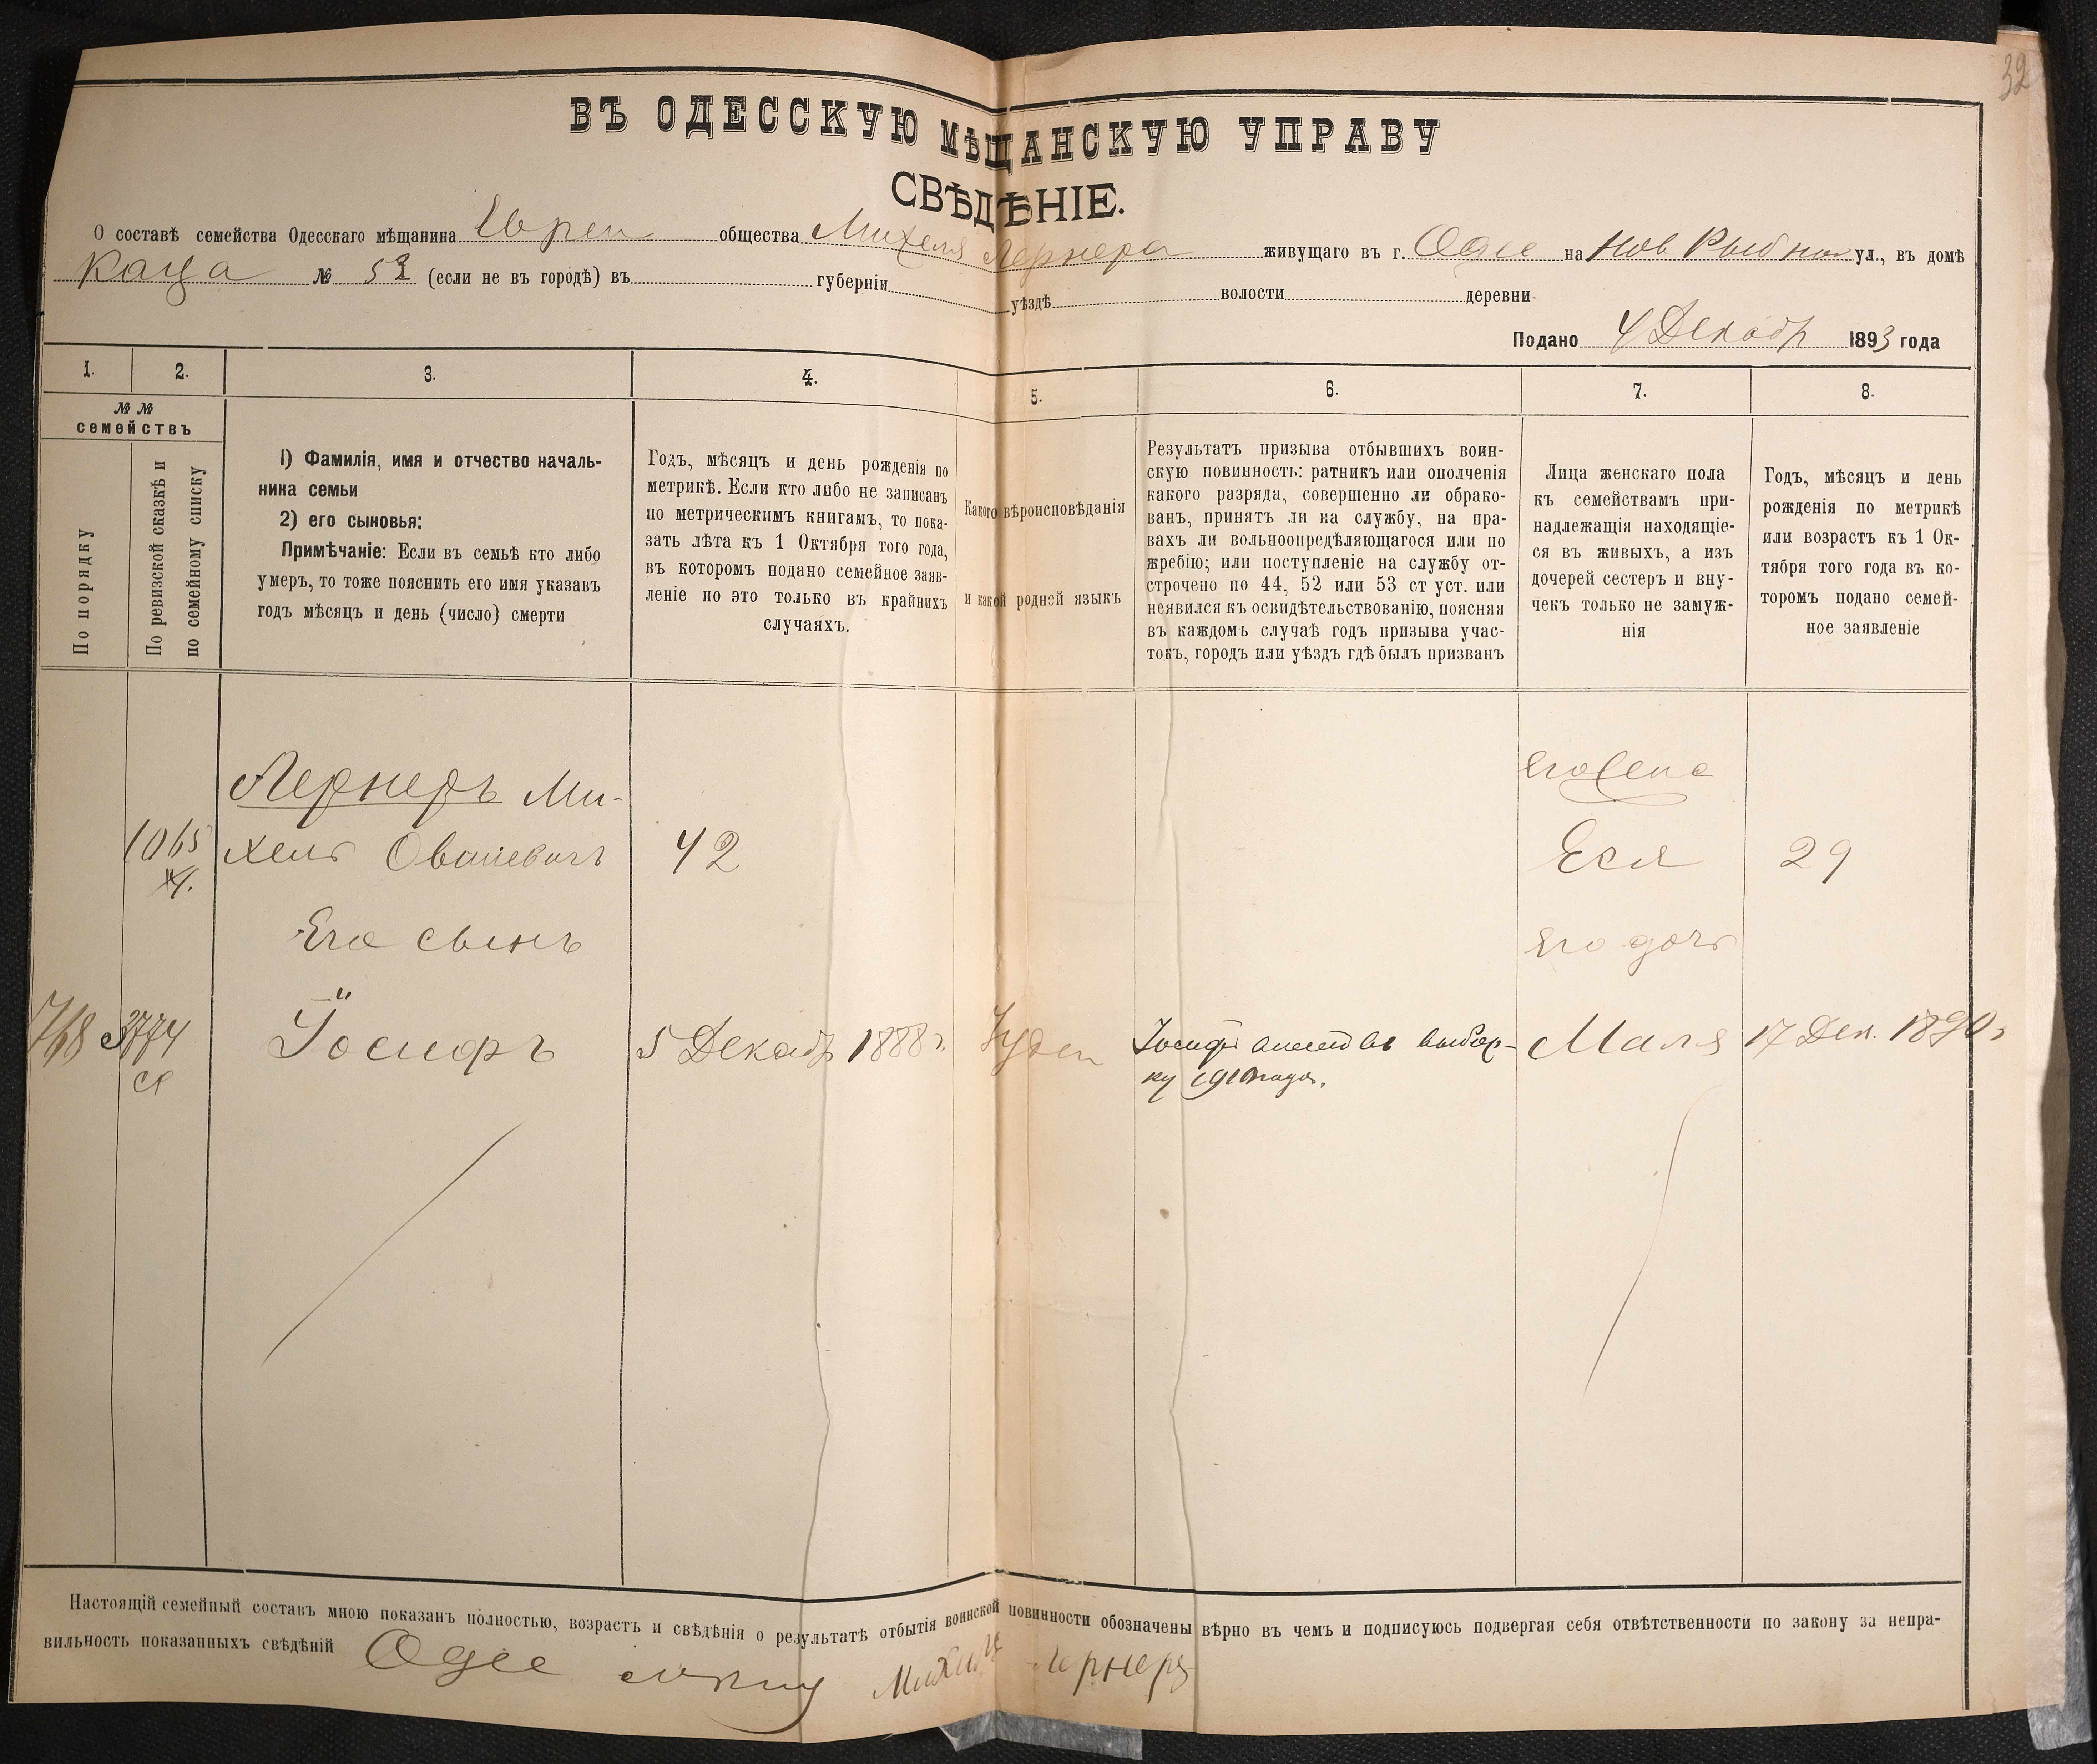 32
ВЪ ОДЕССКУЮ МѢЩАНСКУЮ УПРАВУ
СВѢДѢНІЕ.
О составѣ семейства Одесскаго мѣщанина Еврея общества Михеля Лернера живущаго въ г. Одес на Нов Рыбной ул., въ домѣ
Каца № 52 (если не въ городѣ) въ губерніи уѣздѣ волости деревни
Подано 4 Декабр 1893 года
1. 2. 3. 4. 5. 6. 7. 8.
№ №
семействъ
По порядку
По ревизской сказкѣ и
по семейному списку
1) Фамилія, имя и отчество началь-
ника семьи
2) его сыновья:
Примѣчаніе: Если въ семьѣ кто либо
умеръ, то тоже пояснить его имя указавъ
годъ мѣсяцъ и день (число) смерти
Годъ, мѣсяцъ и день рожденія по
метрикѣ. Если кто либо не записанъ
по метрическимъ книгамъ, то пока-
зать лѣта къ 1 Октября того года,
въ которомъ подано семейное заяв-
леніе но это только въ крайнихъ
случаяхъ.
Какого вѣроисповѣданія
и какой родной языкъ
Результатъ призыва отбывшихъ воин-
скую повинность: ратникъ или ополченія
какого разряда, совершенно ли обрако-
ванъ, принятъ ли на службу, на пра-
вахъ ли вольноопредѣляющагося или по
жребію; или поступленіе на службу от-
строчено по 44, 52 или 53 ст уст. или
неявился къ освидѣтельствованію, поясняя
въ каждомъ случаѣ годъ призыва учас-
токъ, городъ или уѣздъ гдѣ былъ призванъ
Лица женскаго пола
къ семействамъ при-
надлежащія находящіе-
ся въ живыхъ, а изъ
дочерей сестеръ и вну-
чекъ только не замуж-
нія
Годъ, мѣсяцъ и день
рожденія по метрикѣ
или возрастъ къ 1 Ок-
тября того года въ ко-
торомъ подано семей-
ное заявленіе
Лернеръ Ми-
его жена
1065 хель 42 Еся 29
Его сынъ его дочь
768 3774 Іосифъ 5 Декабр 1888 г. Іудей Іосифъ внесенъ въ выбор- Маля 17 Дек. 1890 г
ку 1910 года.
Настоящій семейный составъ мною показанъ полностью, возрастъ и свѣдѣнія о результатѣ отбытія воинской повинности обозначены вѣрно въ чемъ и подписуюсь подвергая себя отвѣтственности по закону за непра-
вильность показанныхъ свѣдѣній Одес Лернеръ